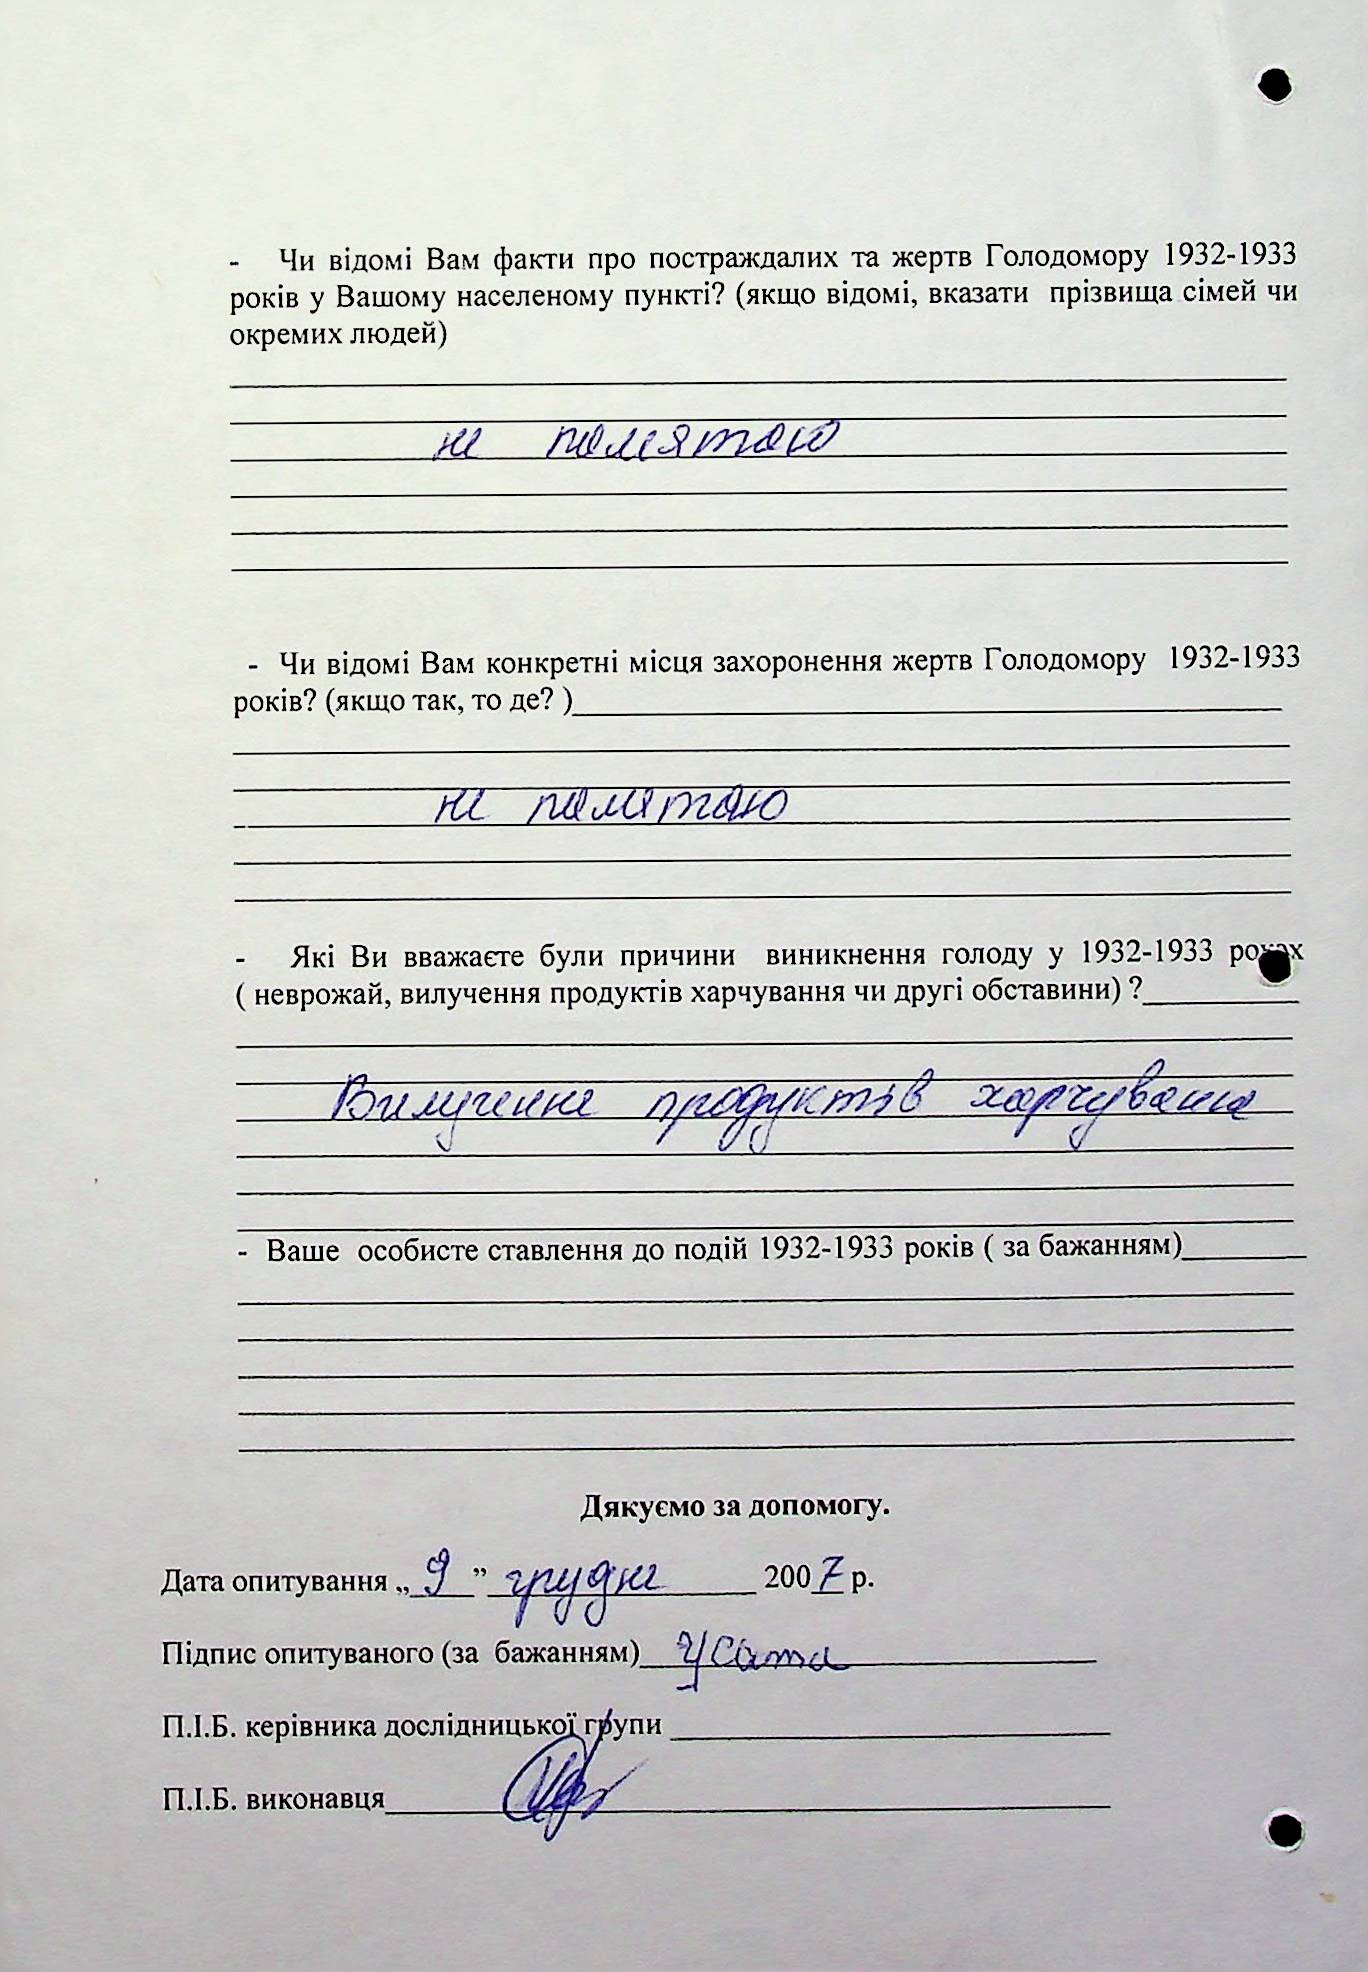 - Чи відомі Вам факти про постраждалих та жертв Голодомору 1932-1933
років у Вашому населеному пункті? (якщо відомі, вказати прізвища сімей чи
окремих людей)
не памятаю
- Чи відомі Вам конкретні місця захоронення жертв Голодомору 1932-1933
років? (якщо так, то де? )
не памятаю
- Які Ви вважаєте були причини виникнення голоду у 1932-1933 роках
( неврожай, вилучення продуктів харчування чи другі обставини) ?
Вилучення продуктів харчування
- Ваше особисте ставлення до подій 1932-1933 років ( за бажанням)
Дякуємо за допомогу.
Дата опитування „ 9 ” грудня 2007 р.
Підпис опитуваного (за бажанням) Усата
П.І.Б. керівника дослідницької групи
П.І.Б. виконавця